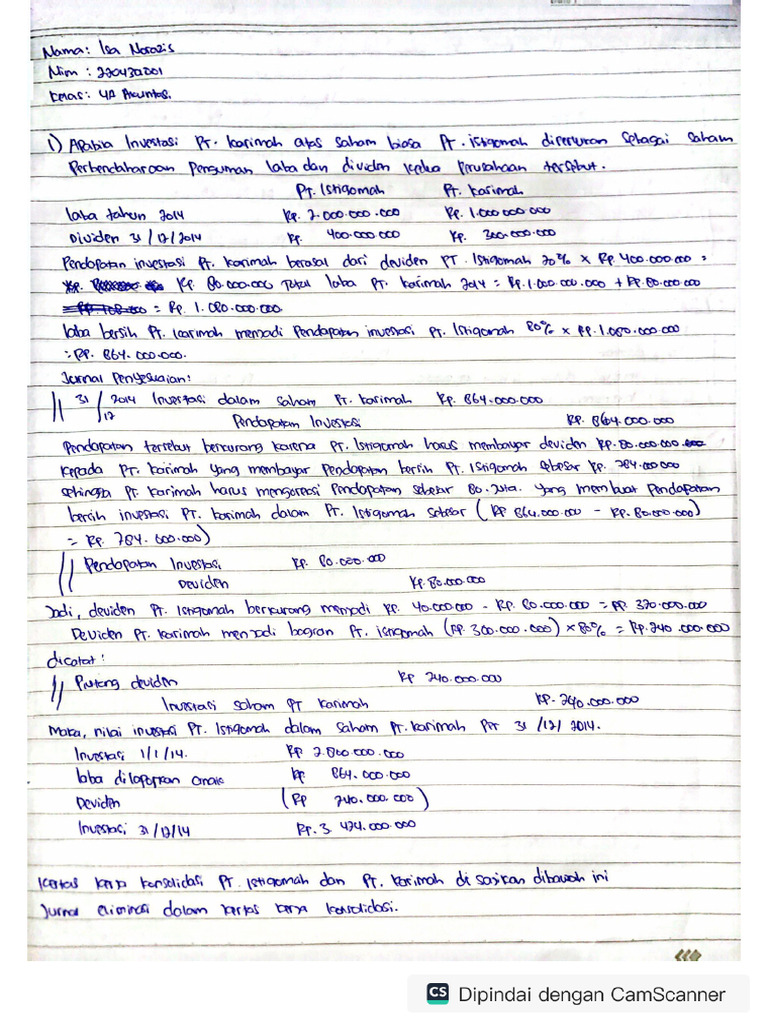 Nama: Isa Norazis
Nim : 220430001
Kelas: 4A Akuntasi
1) Apabila Investasi Pt. Karimah atas saham biasa Pt. istiqomah diperlukan sebagai saham
Perbendaharaan Pengumuman laba dan dividen kedua Perusahaan tersebut.
PT. Istiqomah PT. Karimah
laba tahun 2014 Rp. 2.000.000.000 Rp. 1.000.000.000
Dividen 31/12/2014 Rp. 400.000.000 Rp. 300.000.000
Pendapatan investasi Pt. Karimah berasal dari deviden PT. Istiqomah 20% x Rp. 400.000.000 =
Rp. 80.000.000 Total laba PT. Karimah 2014 = Rp. 1.000.000.000 + Rp. 80.000.000
= Rp. 1.080.000.000
laba bersih Pt. Karimah menjadi Pendapatan investasi Pt. Istiqomah 80% x Rp. 1.080.000.000
= Rp. 864.000.000.
Jurnal Penyesuaian:
31/12 2014 Investasi dalam saham Pt. Karimah Rp. 864.000.000
Pendapatan Investasi Rp. 864.000.000
Pendapatan tersebut berkurang karena Pt. Istiqomah harus membayar deviden Rp. 80.000.000
kepada Pt. Karimah yang membayar Pendapatan bersih Pt. Istiqomah sebesar Rp. 784.000000
sehingga Pt. Karimah harus mengoreksi Pendapatan sebesar 80. Juta. yang membuat Pendapatan
bersih investasi Pt. Karimah dalam Pt. Istiqomah sebesar (Rp 864.000.000 - Rp. 80.000.000)
= Rp. 784.000.000)
Pendapatan Investasi Rp. 80.000.000
Deviden Rp. 80.000.000
Jadi, deviden Pt. Istiqomah berkurang menjadi Rp. 40.000000 - Rp. 80.000.000 = Rp. 320.000.000
Deviden Pt. Karimah menjadi bagian Pt. istiqomah (Rp. 300.000.000) x 80% = Rp. 240.000.000
dicatat :
Piutang deviden Rp 240.000.000
Investasi saham PT Karimah Rp. 240.000.000
Maka, nilai investasi Pt. Istiqomah dalam saham Pt. Karimah Per 31/12/2014.
Investasi 1/1/14. Rp 2.800.000.000
laba dilaporkan anak Rp 864.000.000
Deviden (Rp 240.000.000)
Investasi 31/12/14 Rp. 3.424.000.000
Kertas kerja konsolidasi Pt. Istiqomah dan Pt. Karimah di sajikan dibawah ini
Jurnal eliminasi dalam kertas kerja konsolidasi.
CS Dipindai dengan CamScanner